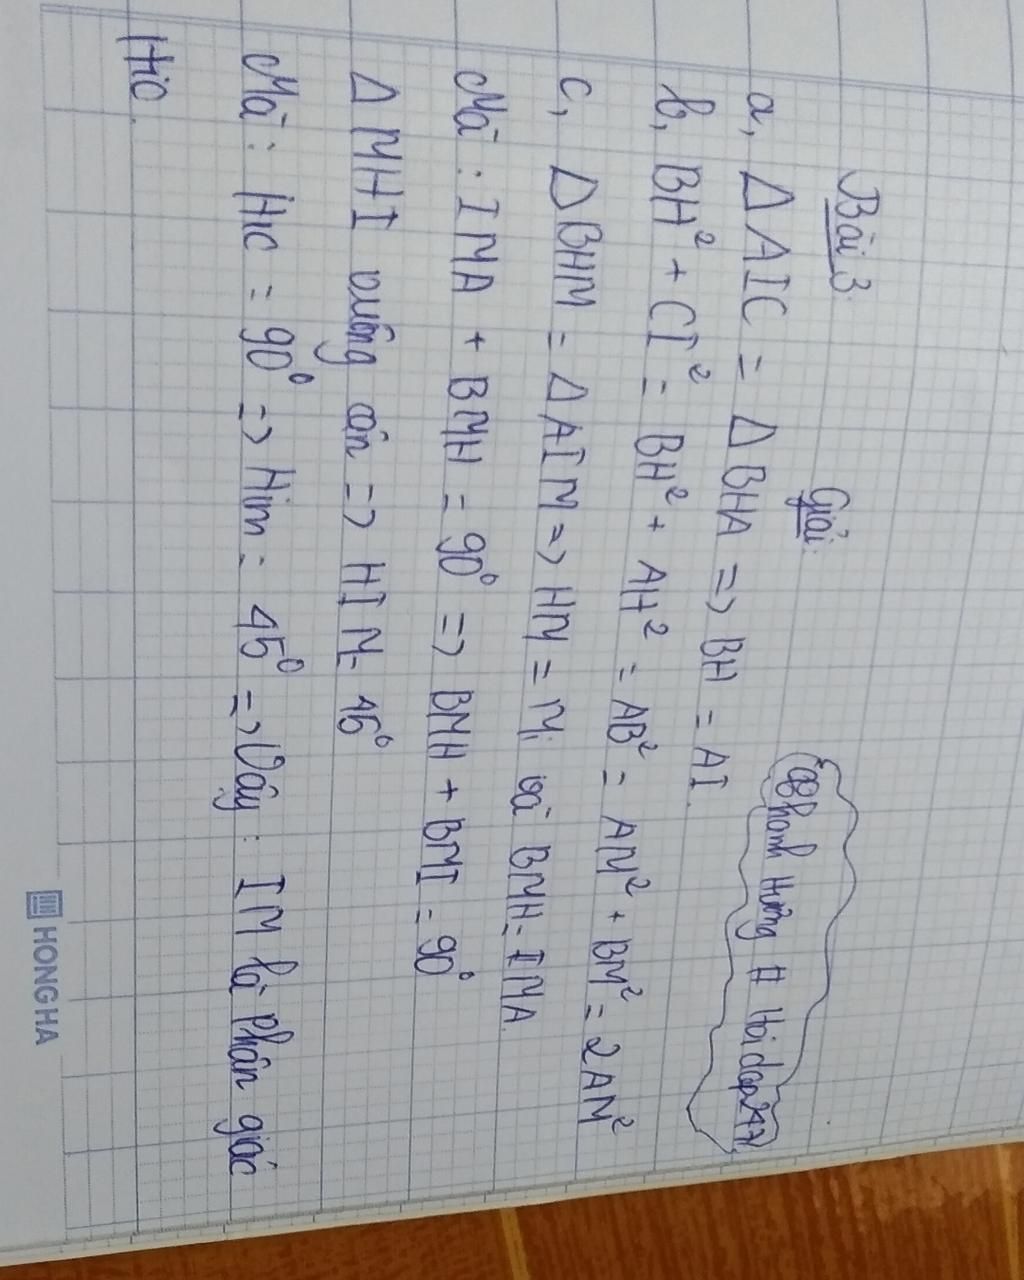 Bài 3:
Giải:
@Phanh Hương # Hoidap247
a, Δ AIC = Δ BHA => BH = AI.
b, BH² + CI² = BH² + AH² = AB² = AM² + BM² = 2AM²
c, Δ BHM = Δ AIM => HM = Mi và BMH = IMA.
Mà : IMA + BMH = 90° => BMH + BMI = 90°
Δ MHI vuông cân => HIM = 45°
Mà : HIC = 90° => Him = 45° => Vậy : IM là phân giác
HIC.
HONG HA